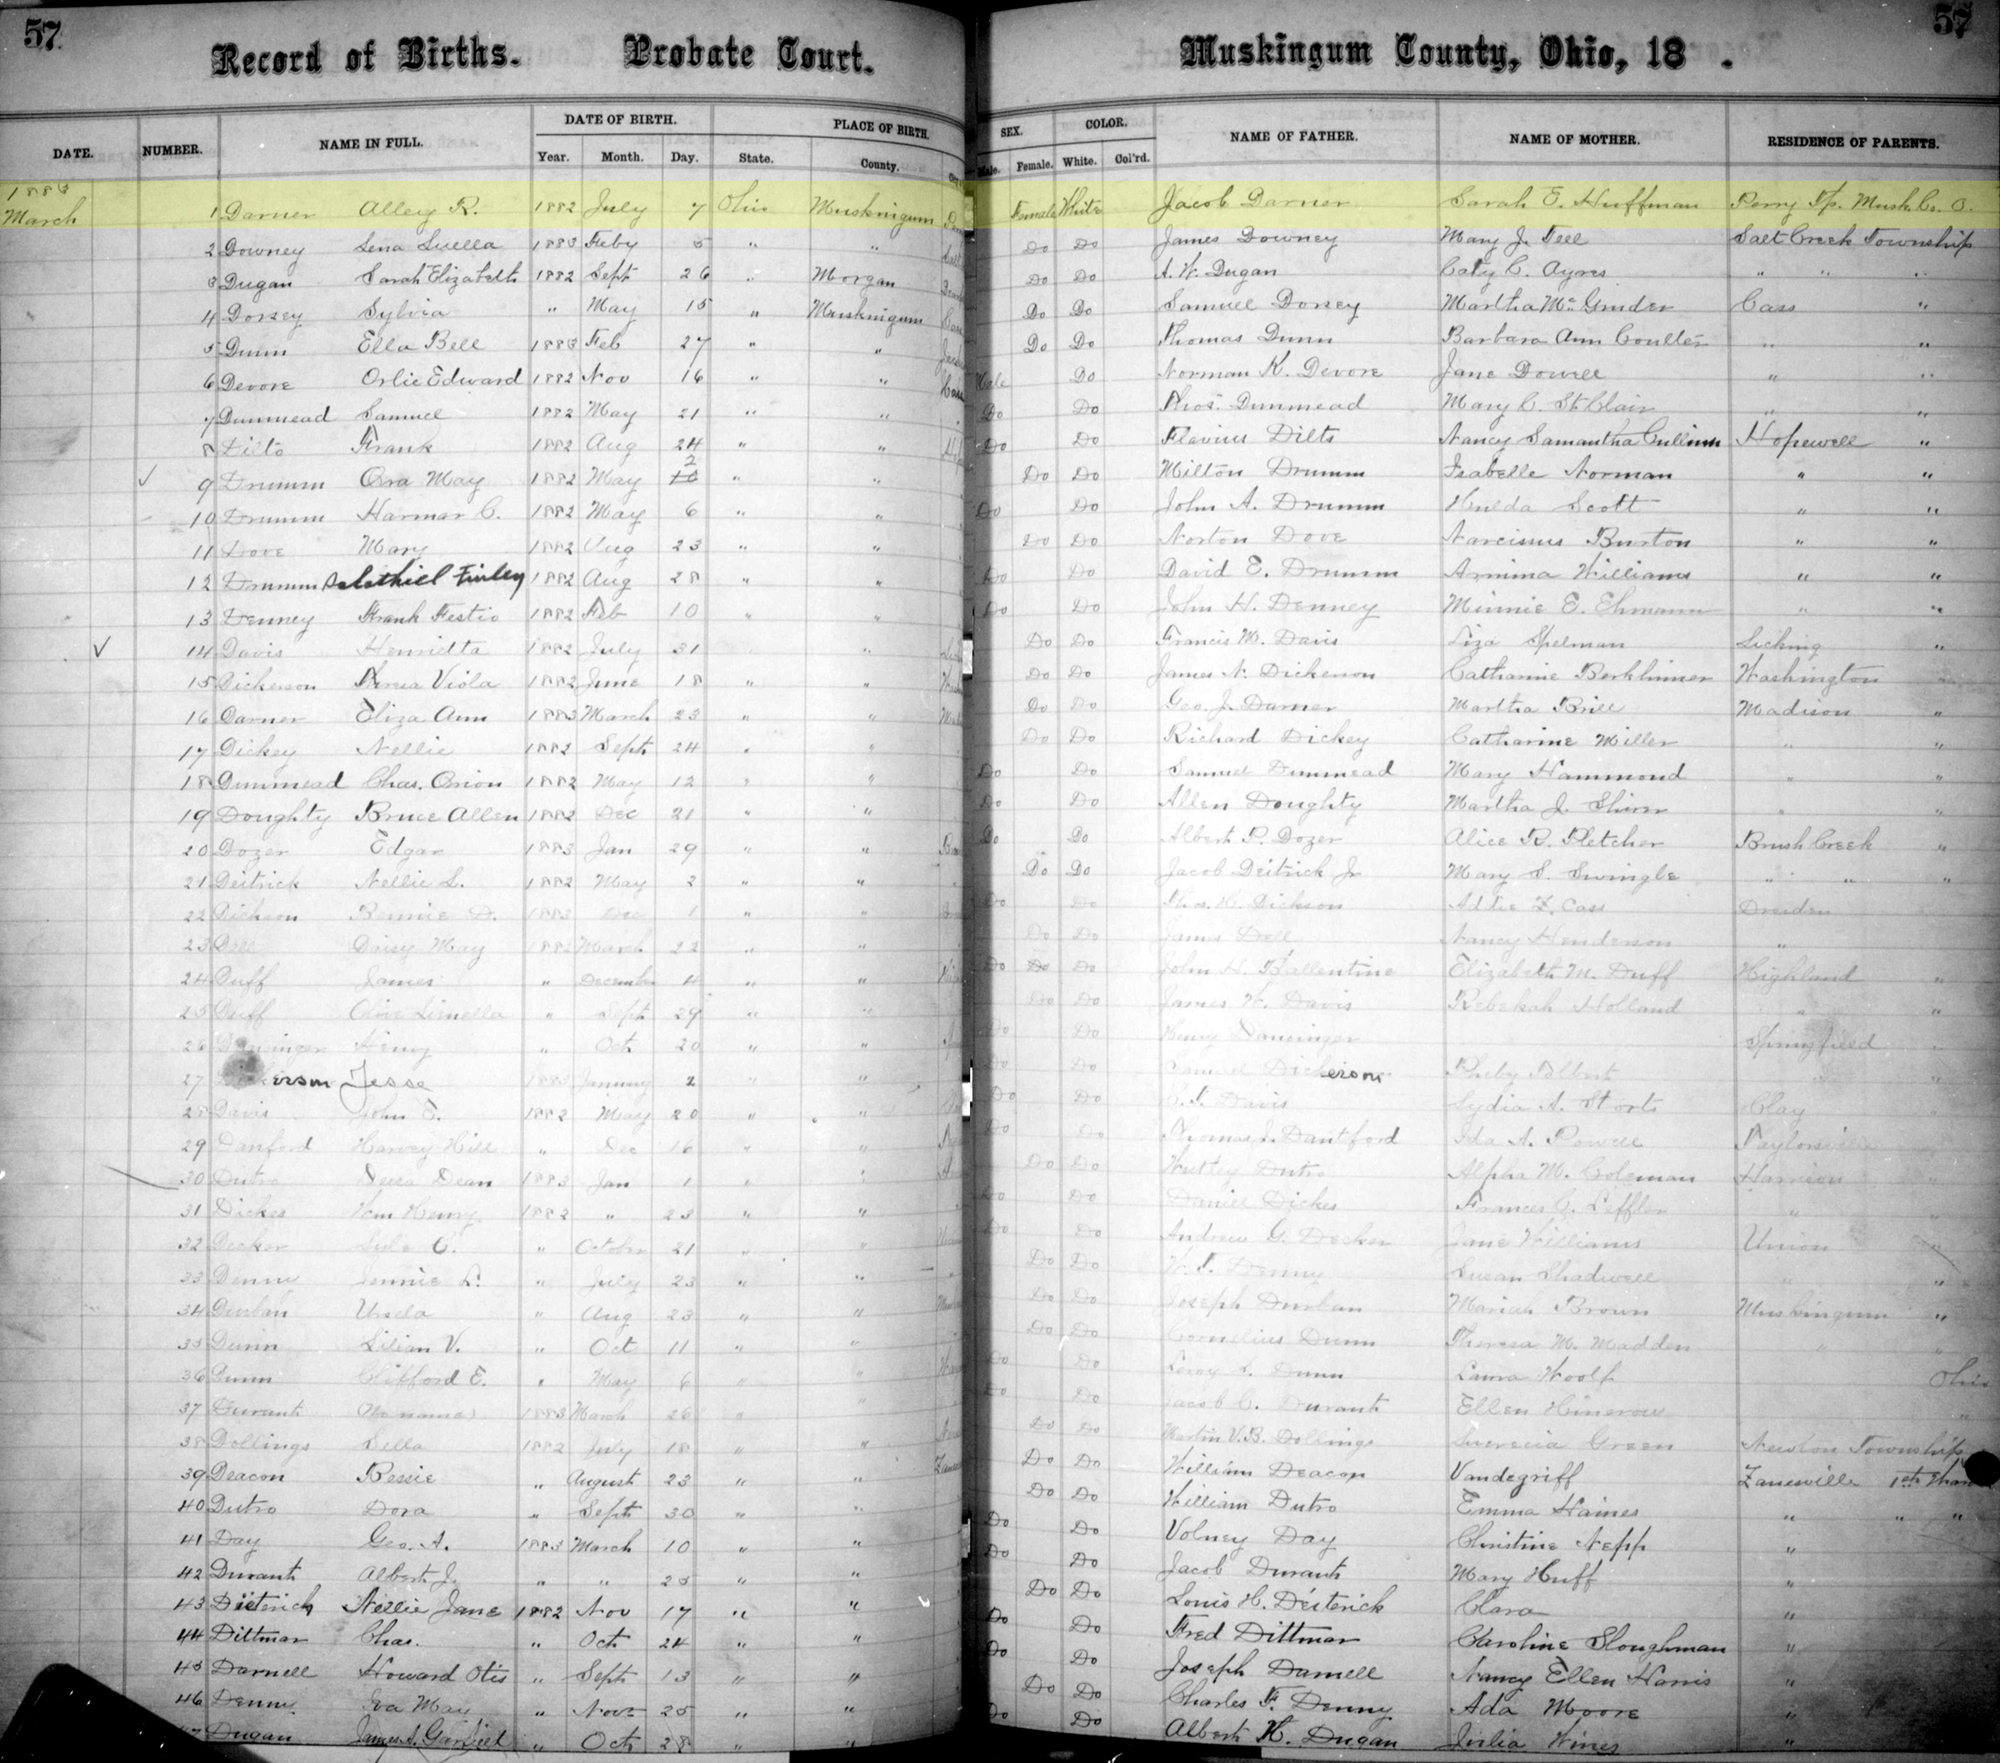 57
57
Record of Births. Probate Court. Muskingum County, Ohio, 18 .
DATE. NUMBER. NAME IN FULL. DATE OF BIRTH. PLACE OF BIRTH. SEX. COLOR. NAME OF FATHER. NAME OF MOTHER. RESIDENCE OF PARENTS.
Year. Month. Day. State. County. Male. Female. White. Col'rd.
1883
March 1 Darner Alley R. 1882 July 7 Ohio Muskingum Female White Jacob Darner Sarah E. Huffman Perry Tp. Musk. Co. O.
2 Downey Lena Luella 1883 Feby 5 " " Do Do James Downey Mary J. Tell Salt Creek Township
3 Dugan Sarah Elizabeth 1882 Sept 26 " Morgan Do Do A. W. Dugan Caty C. Ayres " " "
4 Dorsey Sylvia " May 15 " Muskingum Do Do Samuel Dorsey Martha Mc Ginder Cass "
5 Dunn Ella Bell 1883 Feb 27 " " Do Do Thomas Dunn Barbara Ann Coulter " "
6 Devore Orlie Edward 1882 Nov 16 " " Male Do Norman K. Devore Jane Dowell " "
7 Dunmead Samuel 1882 May 21 " " Do Do Thos. Dunmead Mary C. St Clair " "
8 Dilts Frank 1882 Aug 24 " " Do Do Flavius Dilts Nancy Samantha Cullinn Hopewell "
9 Drumm Ora May 1882 May 2 " " Do Do Milton Drumm Isabelle Norman " "
10 Drumm Harmar C. 1882 May 6 " " Do Do John A. Drumm Hulda Scott " "
11 Dove Mary 1882 Aug 23 " " Do Do Norton Dove Narcissus Burton " "
12 Drumm Salathiel Finley 1882 Aug 28 " " Do Do David E. Drumm Armina Williams " "
13 Denney Frank Festio 1882 Feb 10 " " Do Do John H. Denney Minnie E. Ehmann " "
14 Davis Henrietta 1882 July 31 " Do Do Francis M. Davis Liza Spelman Licking "
15 Dickerson Viola 1882 June 18 " " Do Do James N. Dickenson Catharine Berkhimer Washington
16 Darner Eliza Ann 1883 March 23 " " Do Do Geo. J. Darner Martha Brill Madison "
17 Dickey Nellie 1882 Sept 24 " " Do Do Richard Dickey Catharine Miller " "
18 Dunmead Chas. Orion 1882 May 12 " " Do Do Samuel Dunmead Mary Hammond " "
19 Doughty Bruce Allen 1882 Dec 21 " " Do Do Allen Doughty Martha J. Shirer " "
20 Dozer Edgar 1883 Jan 29 " " Do Do Albert P. Dozer Alice R. Fletcher Brush Creek "
21 Deitrick Nellie L. 1882 May 2 " " Do Do Jacob Deitrick Jr Mary S. Swingle " " "
22 Dickson Bennie D. 1883 Dec 1 " " Do Do Thos. H. Dickson Addie Z. Cass Dresden
23 Dell Daisy May 1882 March 22 " " Do Do James Dell Nancy Henderson "
24 Duff James " December 4 " " Do Do Do John H. Ballentine Elizabeth M. Duff Highland "
25 Duff " Sept 29 " " Do Do James W. Davis Rebekah Holland " "
26 Henry " Oct 20 " " Do Do Henry Dansinger Springfield
27 erson Jesse 1883 January 2 " " Do Do Samuel Dickerson Pheby Tolbert
28 Davis John E. 1882 May 20 " " Do Do C. F. Davis Lydia A. Storts Clay
29 Danford Harvey Hill " Dec 16 " " Do Do Thomas J. Dantford Ida A. Powell Taylorsville
30 Dutro Dean 1883 Jan 1 " " Do Do Dutro Alpha M. Coleman Harrison
31 Dickes Wm Henry 1882 " 23 " " Do Do Daniel Dickes Frances C. Leffler " "
32 Decker C. " October 21 " " Do Do Andrew G. Decker Jane Williams Union "
33 Denny Jennie L. " July 23 " " Do Do W. F. Denny Susan Shadwell " "
34 Durban Ursula " Aug 23 " " Do Do Joseph Durban Mariah Brown Muskingum "
35 Dunn Lilian V. " Oct 11 " " Do Do Cornelius Dunn Theresa M. Madden " "
36 Dunn Clifford E. " May 6 " " Do Do Leroy L. Dunn Laura Woolf Ohio
37 Durant (no name) 1883 March 26 " " Do Do Jacob C. Durant Ellen Hinerow "
38 Dollings Lella 1882 July 18 " " Do Do Martin V. B. Dollings Green Newton Township
39 Deacon Bessie " August 23 " " Do Do William Deacon Vandegriff Zanesville 1st Ward
40 Dutro Dora " Sept 30 " " Do Do William Dutro Emma Haines " " "
41 Day Geo. A. 1883 March 10 " " Do Do Volney Day Christine Nepp "
42 Durant Albert J. " " 25 " " Do Do Jacob Durant Mary Huff "
43 Dieterich Nellie Jane 1882 Nov 17 " " Do Do Louis H. Deiterick Clara "
44 Dittmar Chas. " Oct 24 " " Do Do Fred Dittmar Caroline Sloughman "
45 Darnell Howard Otis " Sept 13 " " Do Do Joseph Darnell Nancy Ellen Harris "
46 Denny Iva May " Nov 25 " " Do Do Charles F. Denny Ada Moore "
47 Dugan James A. Garfield " Oct 28 " " Do Do Albert H. Dugan Julia Wines "